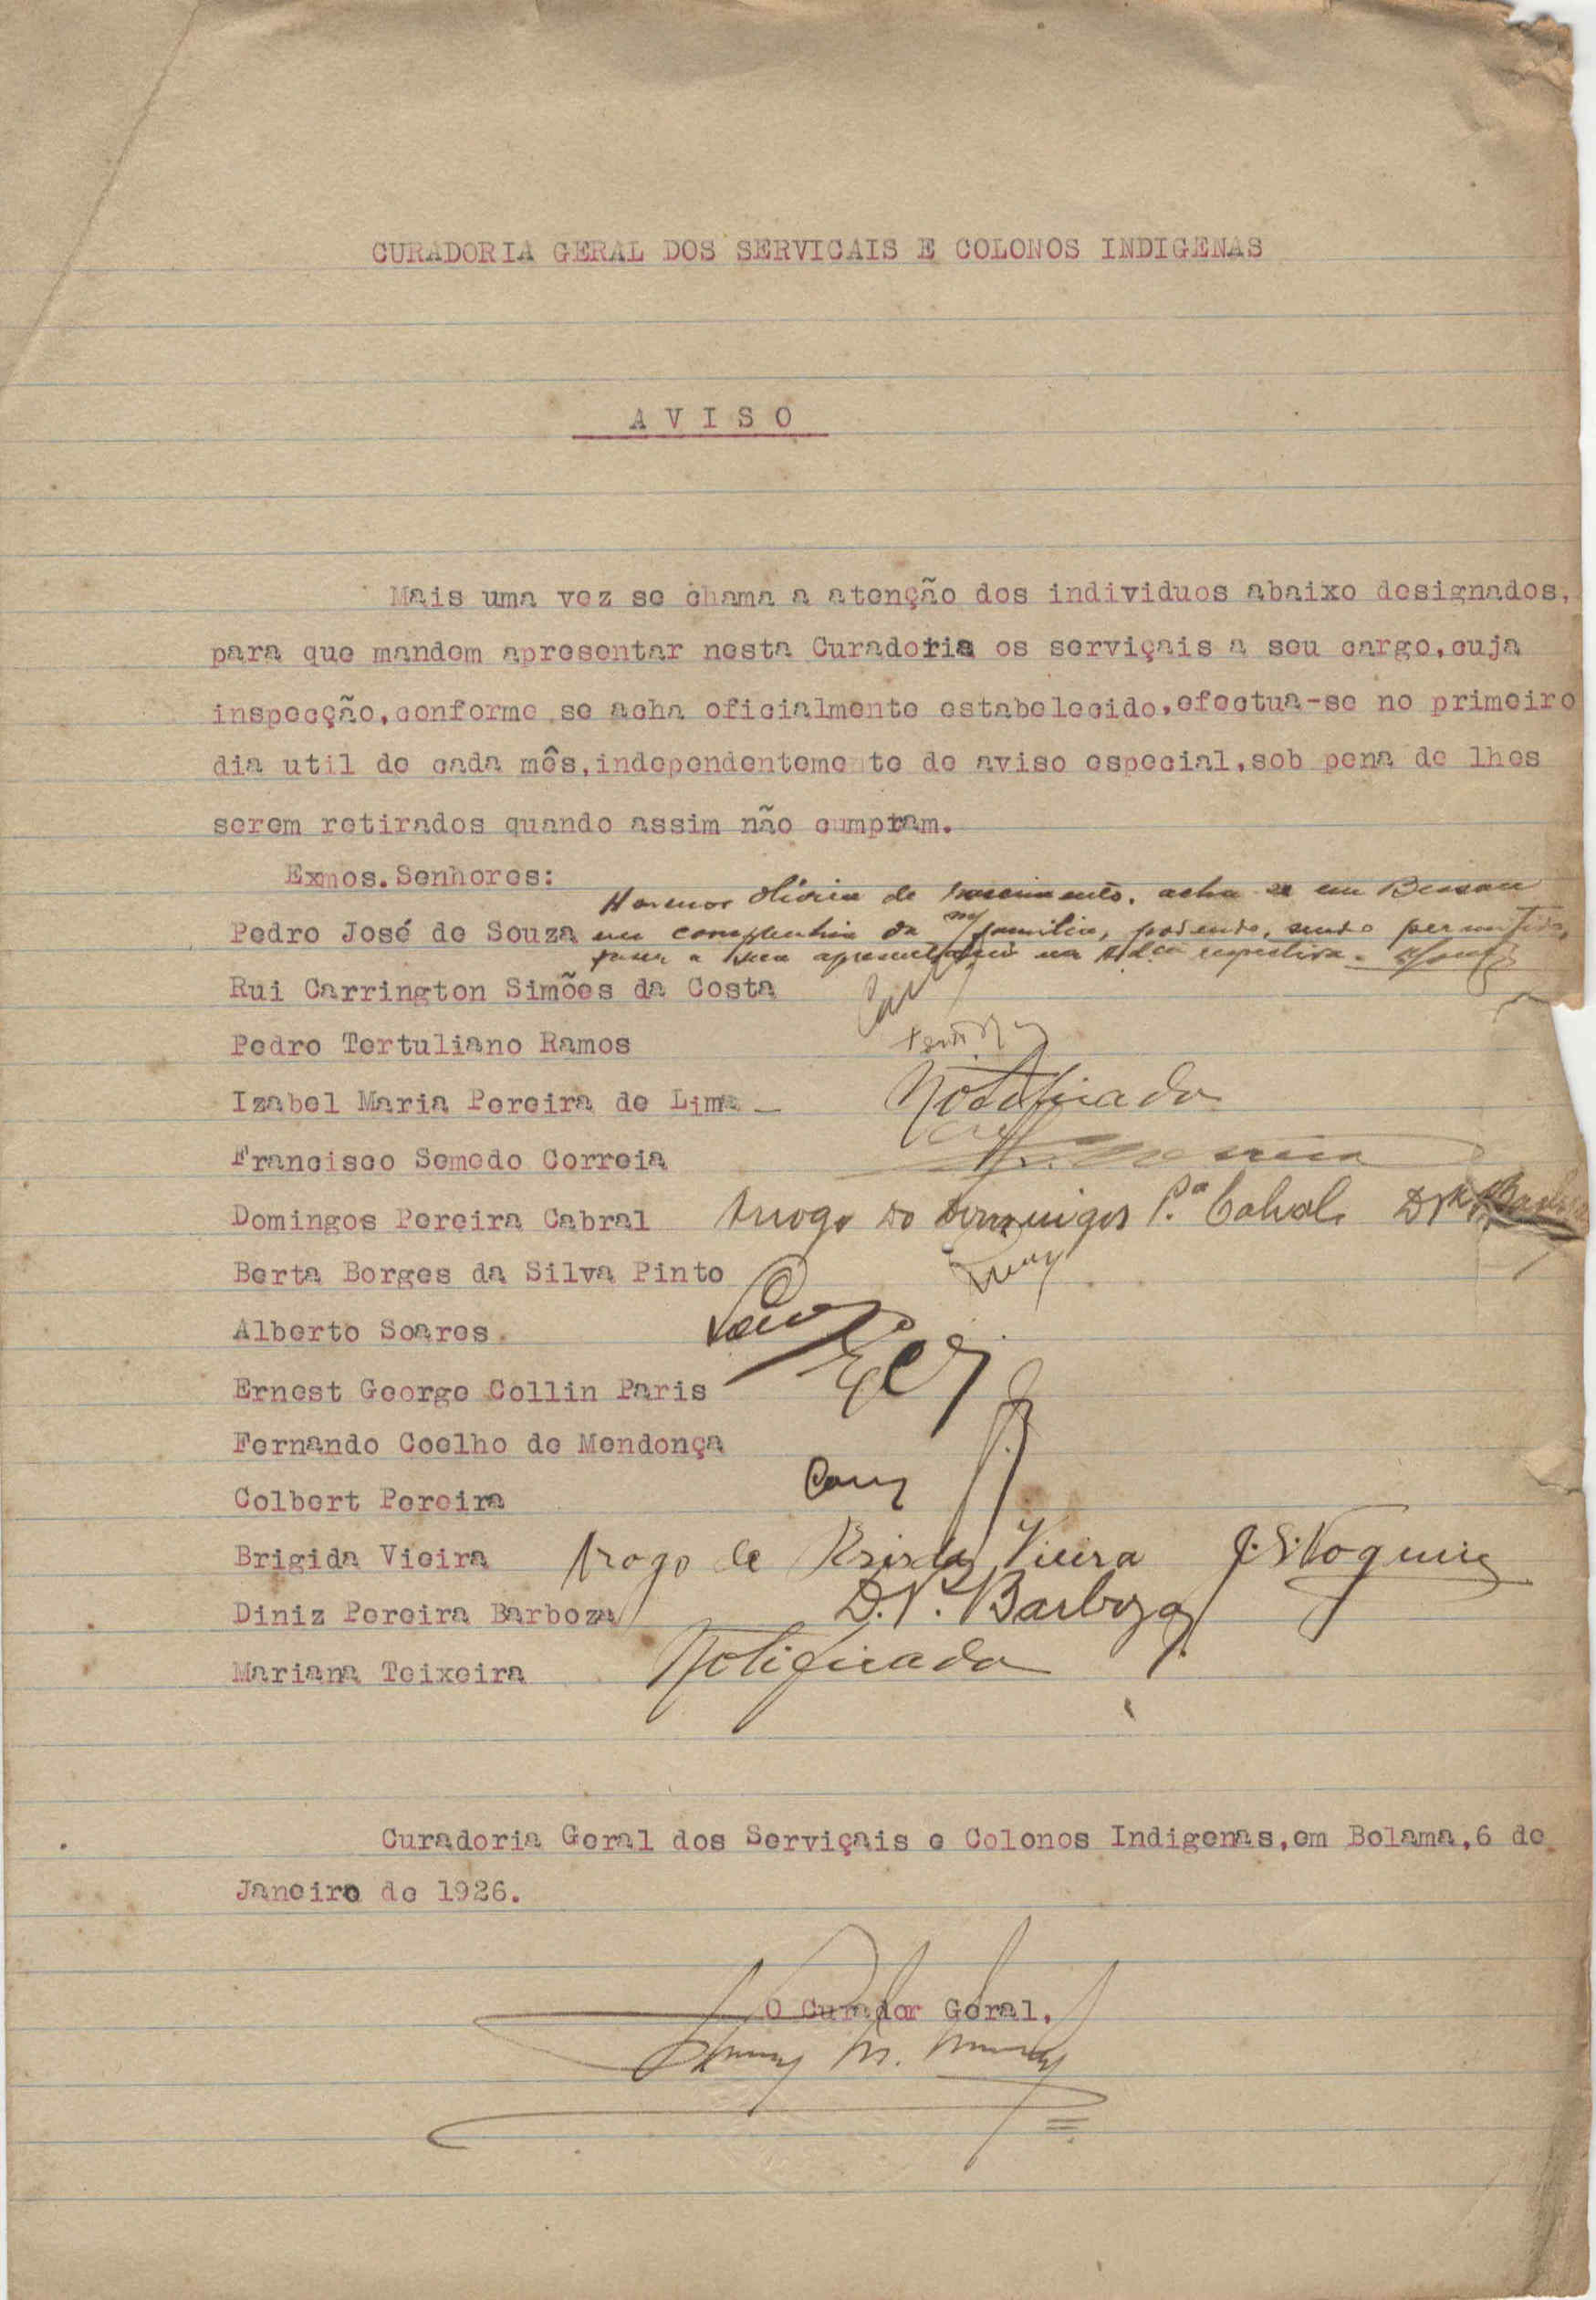 CURADORIA GERAL DOS SERVICAIS E COLONOS INDIGENAS
AVISO
Mais uma vez se chama a atenção dos individuos abaixo designados,
para que mandem apresentar nesta Curadoria os serviçais a seu cargo,cuja
inspecção,conforme se acha oficialmente estabelecido,efectua-se no primeiro
dia util de cada mês,independentemente de aviso especial,sob pena de lhes
serem retirados quando assim não cumpram.
Exmos.Senhores:
A menor Olivia do Nascimento, acha se em Bissau
Pedro José de Souza em companhia da família, podendo, sendo permitido,
fazer a sua apresentação na respectiva.
Rui Carrington Simões da Costa
Pedro Tertuliano Ramos
Izabel Maria Pereira de Lima - Notificada
Francisco Semedo Correia
Domingos Pereira Cabral A rogo do Domingos P.ª Cabral
Berta Borges da Silva Pinto
Alberto Soares
Ernest George Collin Paris
Fernando Coelho de Mendonça
Colbert Pereira
Brigida Vieira A rogo de Brigida Vieira
Diniz Pereira Barboza D. P. Barboza
Mariana Teixeira Notificada
Curadoria Geral dos Serviçais e Colonos Indigenas,em Bolama,6 de
Janeiro de 1926.
O Curador Geral,